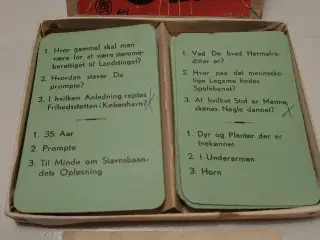 1. Hvor gammel skal man
være for at være stemme-
berettiget til Landstinget?
2. Hvordan staver De
prompte?
3. I hvilken Anledning rejstes
Frihedsstøtten i København?
1. 35 Aar
2. Prompte
3. Til Minde om Stavnsbaan-
dets Opløsning
1. Ved De hvad Hermafro-
diter er?
2. Hvor paa det menneske-
lige Legeme findes
Spolebenet?
3. Af hvilket Stof er Menne-
skenes Negle dannet?
1. Dyr og Planter der er
tvekønnet
2. I Underarmen
3. Horn